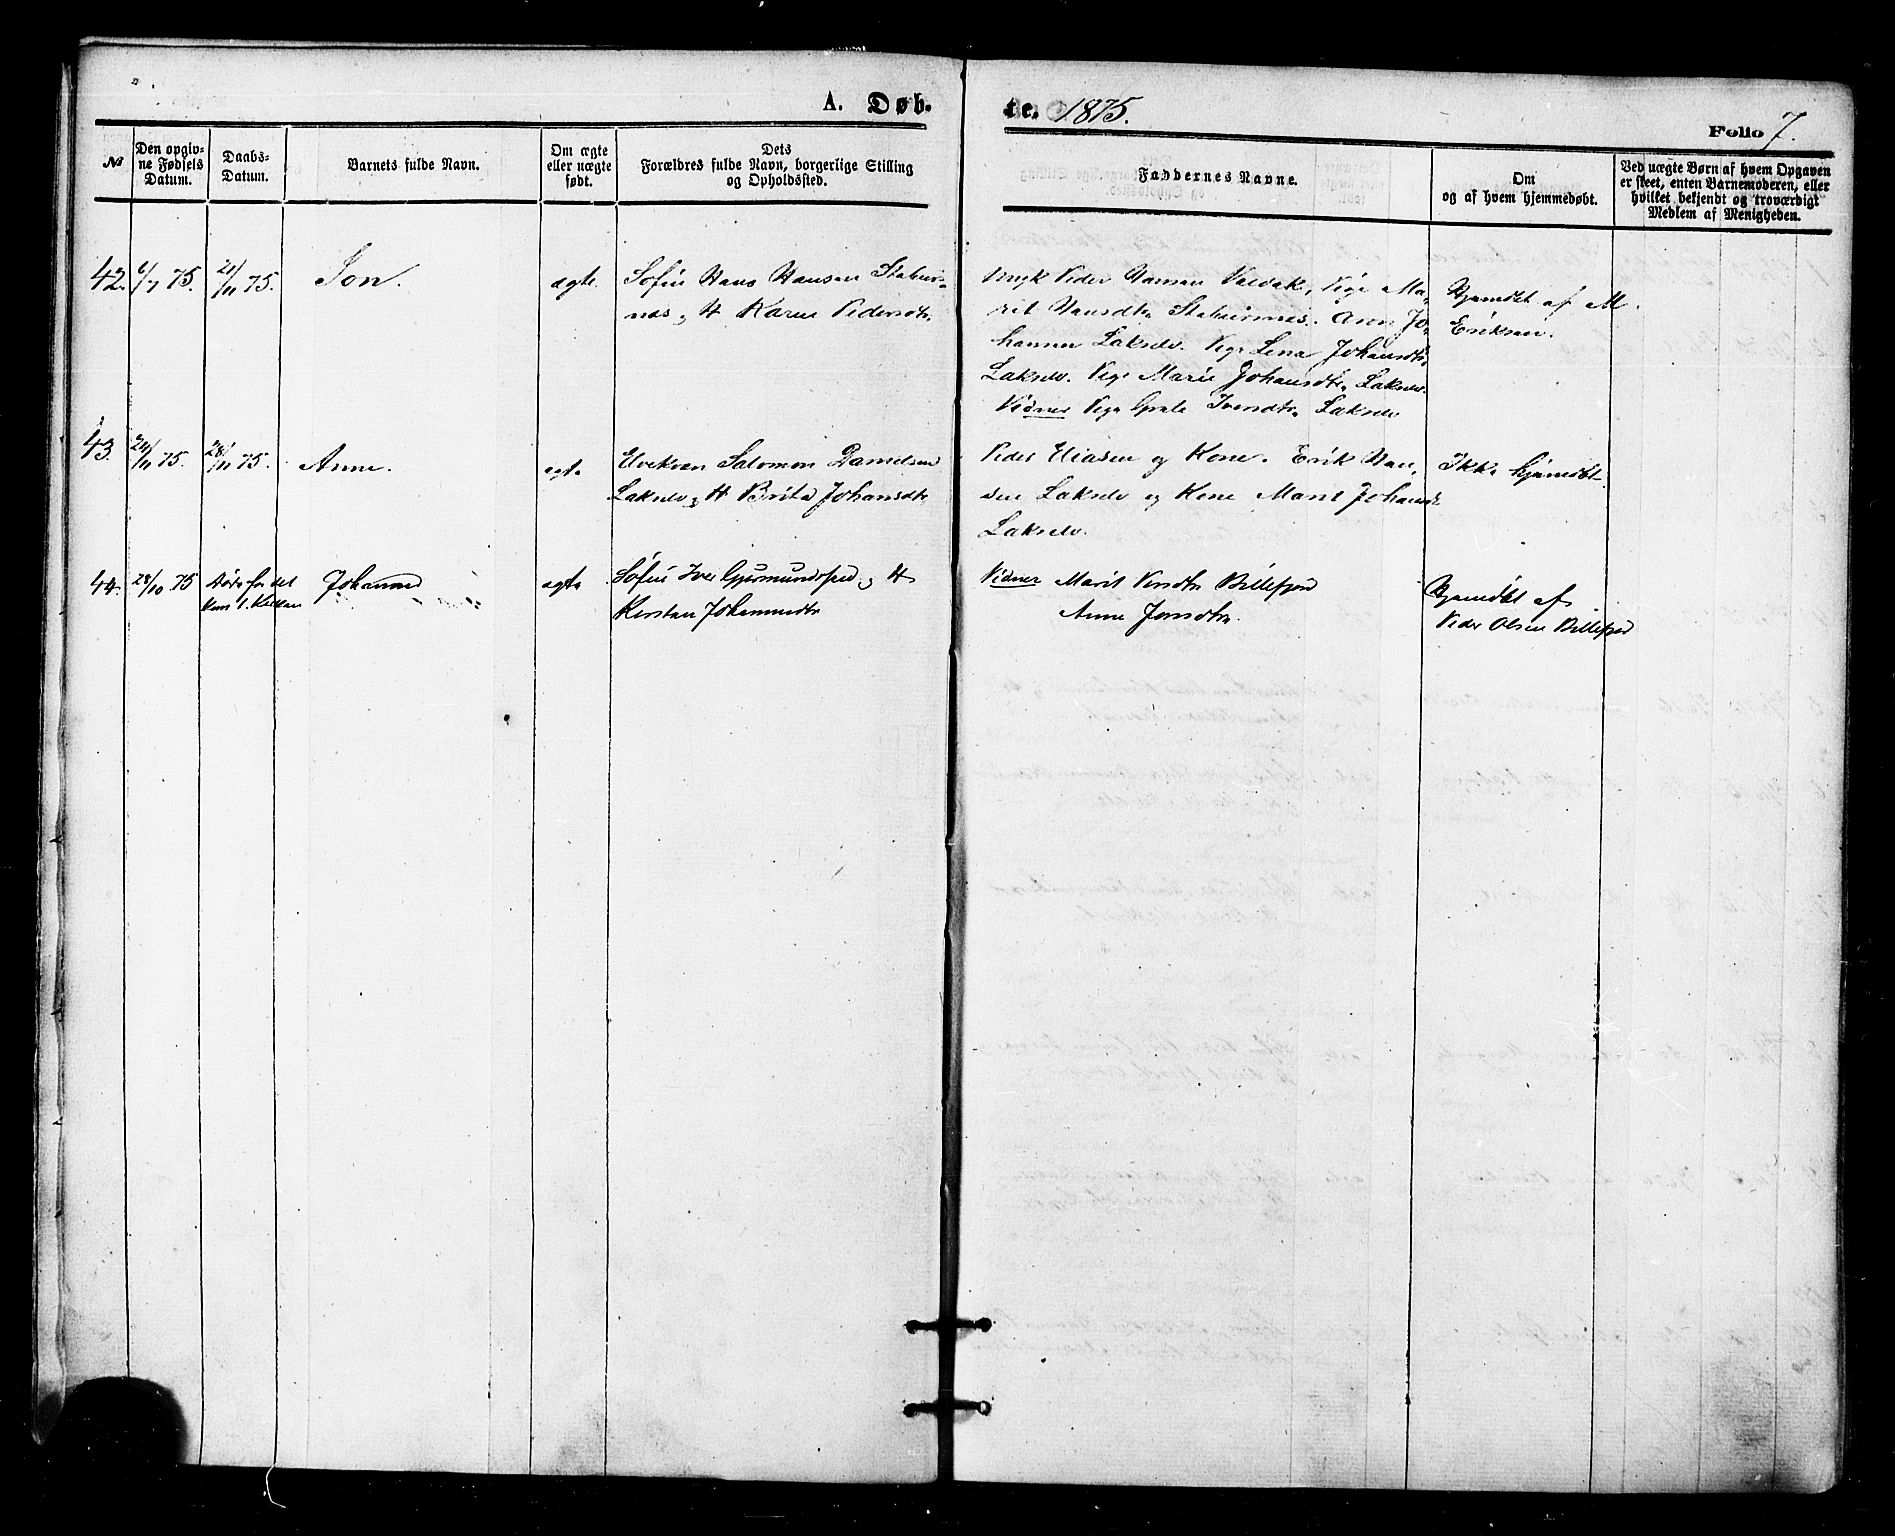 A. Døb.
te. 1875.
Folio 7.
No
Den opgiv-
ne Fødsels
Datum.
Daabs-
Datum.
Barnets fulde Navn.
Om ægte
eller uægte
født.
Dets
Forældres fulde Navn, borgerlige Stilling
og Opholdssted.
Faddernes Navne.
Om
og af hvem hjemmedøbt.
Ved uægte Børn af hvem Opgaven
er skeet, enten Barnemoderen, eller
hvilket bekjendt og troværdigt
Medlem af Menigheden.
42. 6/7 75. 21/11 75. Jon. ægte. Søfin Hans Hansen Staburs-
næs, H Karen Pedersdtr.
Peder Hansen Valdak, Pige Ma-
rit Hansdtr Stabursnæs. Jo-
hannsen Lakselv. Pige Lena Johansdtr
Lakselv. Pige Marie Johansdtr Lakselv.
Vidner Pige Grete Iversdtr Lakselv
Hjemdøbt af M.
Eriksen.
43. 24/11 75. 28/11 75. Anne. ægte Elvekvæn Salomon Danielsen
Lakselv, H Brita Johansdtr
Peder Eliasen og Kone. Erik Han-
sen Lakselv og Kone Marit Johansdt
Lakselv.
Ikke hjemdøbt.
44. 28/10 75 Døde før det
kom t. Kirken
Johannes ægte Søfin Iver Gjermundssen, H
Kirsten Johannesdtr
Vidner Marit Billefjord
Anne Jonsdtr.
Hjemdøbt af
Peder Olsen Billefjord